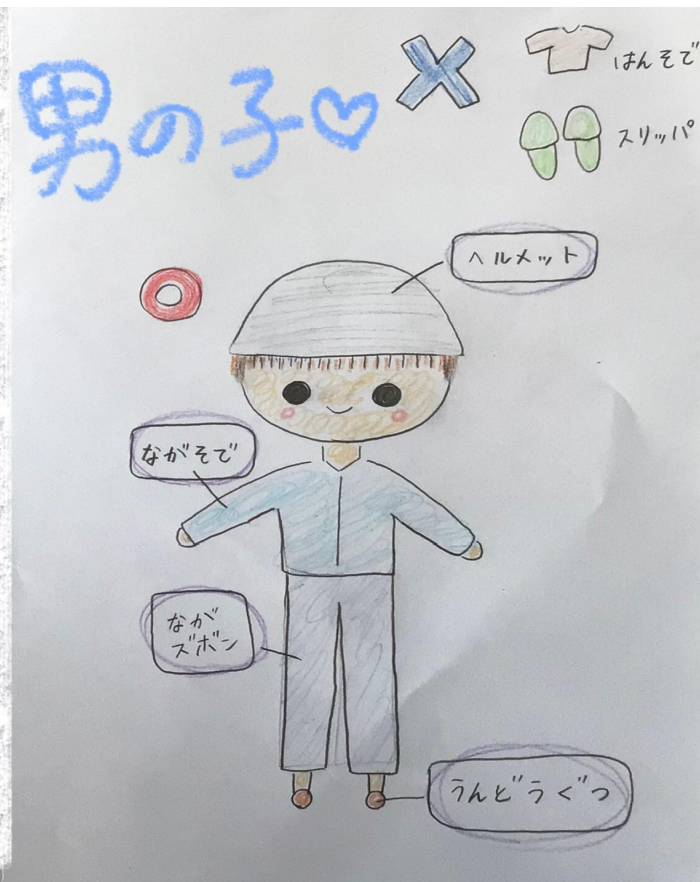 男の子♡
はんそで
スリッパ
ヘルメット
ながそで
なが
ズボン
うんどうぐつ